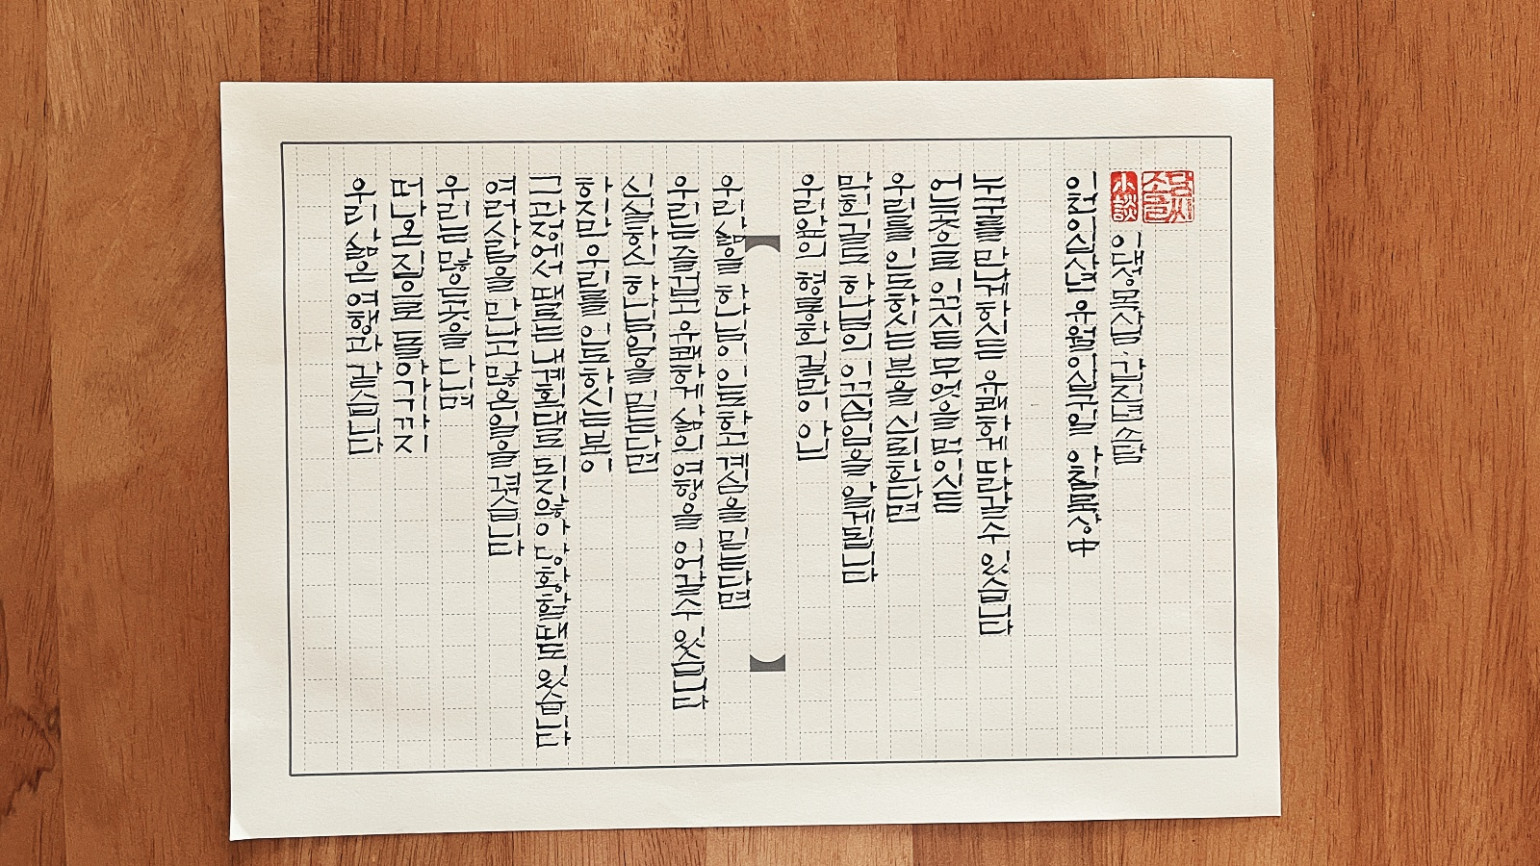 우리 삶은 여행과 같습니다
떠나온 집으로 돌아가기까지
우리는 많은 곳을 다니며
여러 사람을 만나고 많은 일을 겪습니다
그 과정에서 때로는 내 계획대로 되지 않아 당황할 때도 있습니다
하지만 우리를 인도하시는 분이
신실하신 하나님임을 믿는다면
우리는 즐겁고 유쾌하게 삶의 여행을 이어갈 수 있습니다
우리 삶을 하나님이 인도하고 계심을 믿는다면
우리 앞의 형통한 길만이 아닌
막힌 길도 하나님의 이끄심임을 알게 됩니다
우리를 인도하시는 분을 신뢰한다면
어느 곳으로 이끄시든 무엇을 먹이시든
누구를 만나게 하시든 유쾌하게 따라갈 수 있습니다
이천이십사년 유월 이십구일 아침묵상 中
小談
이대성 목사님 · 갑진년 소담
소담글씨